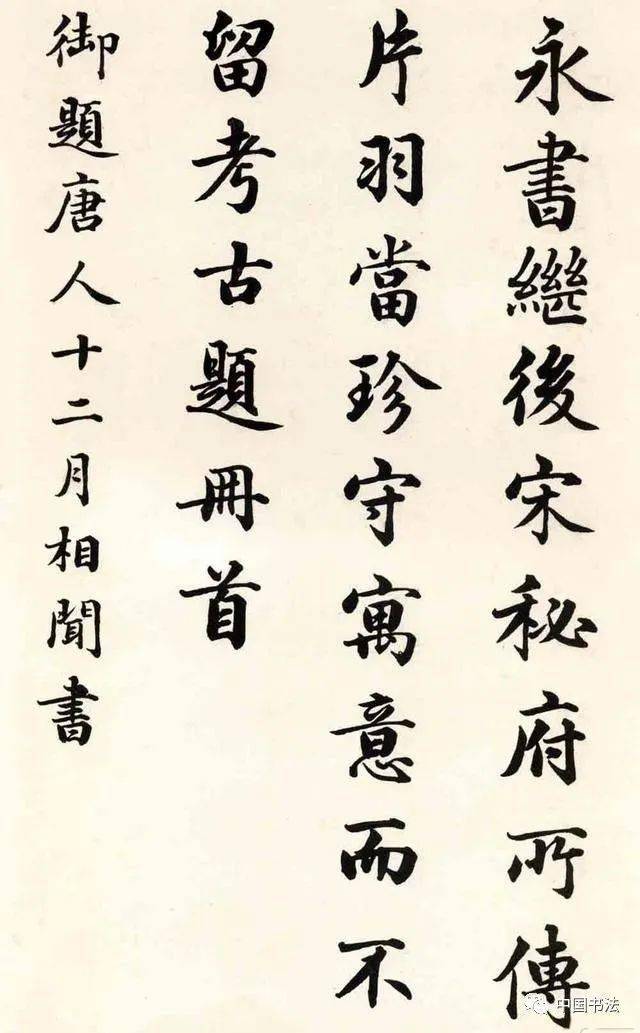 永書繼後宋秘府所傳
片羽當珍守寓意而不
留考古題冊首
御題唐人十二月相聞書
中国书法